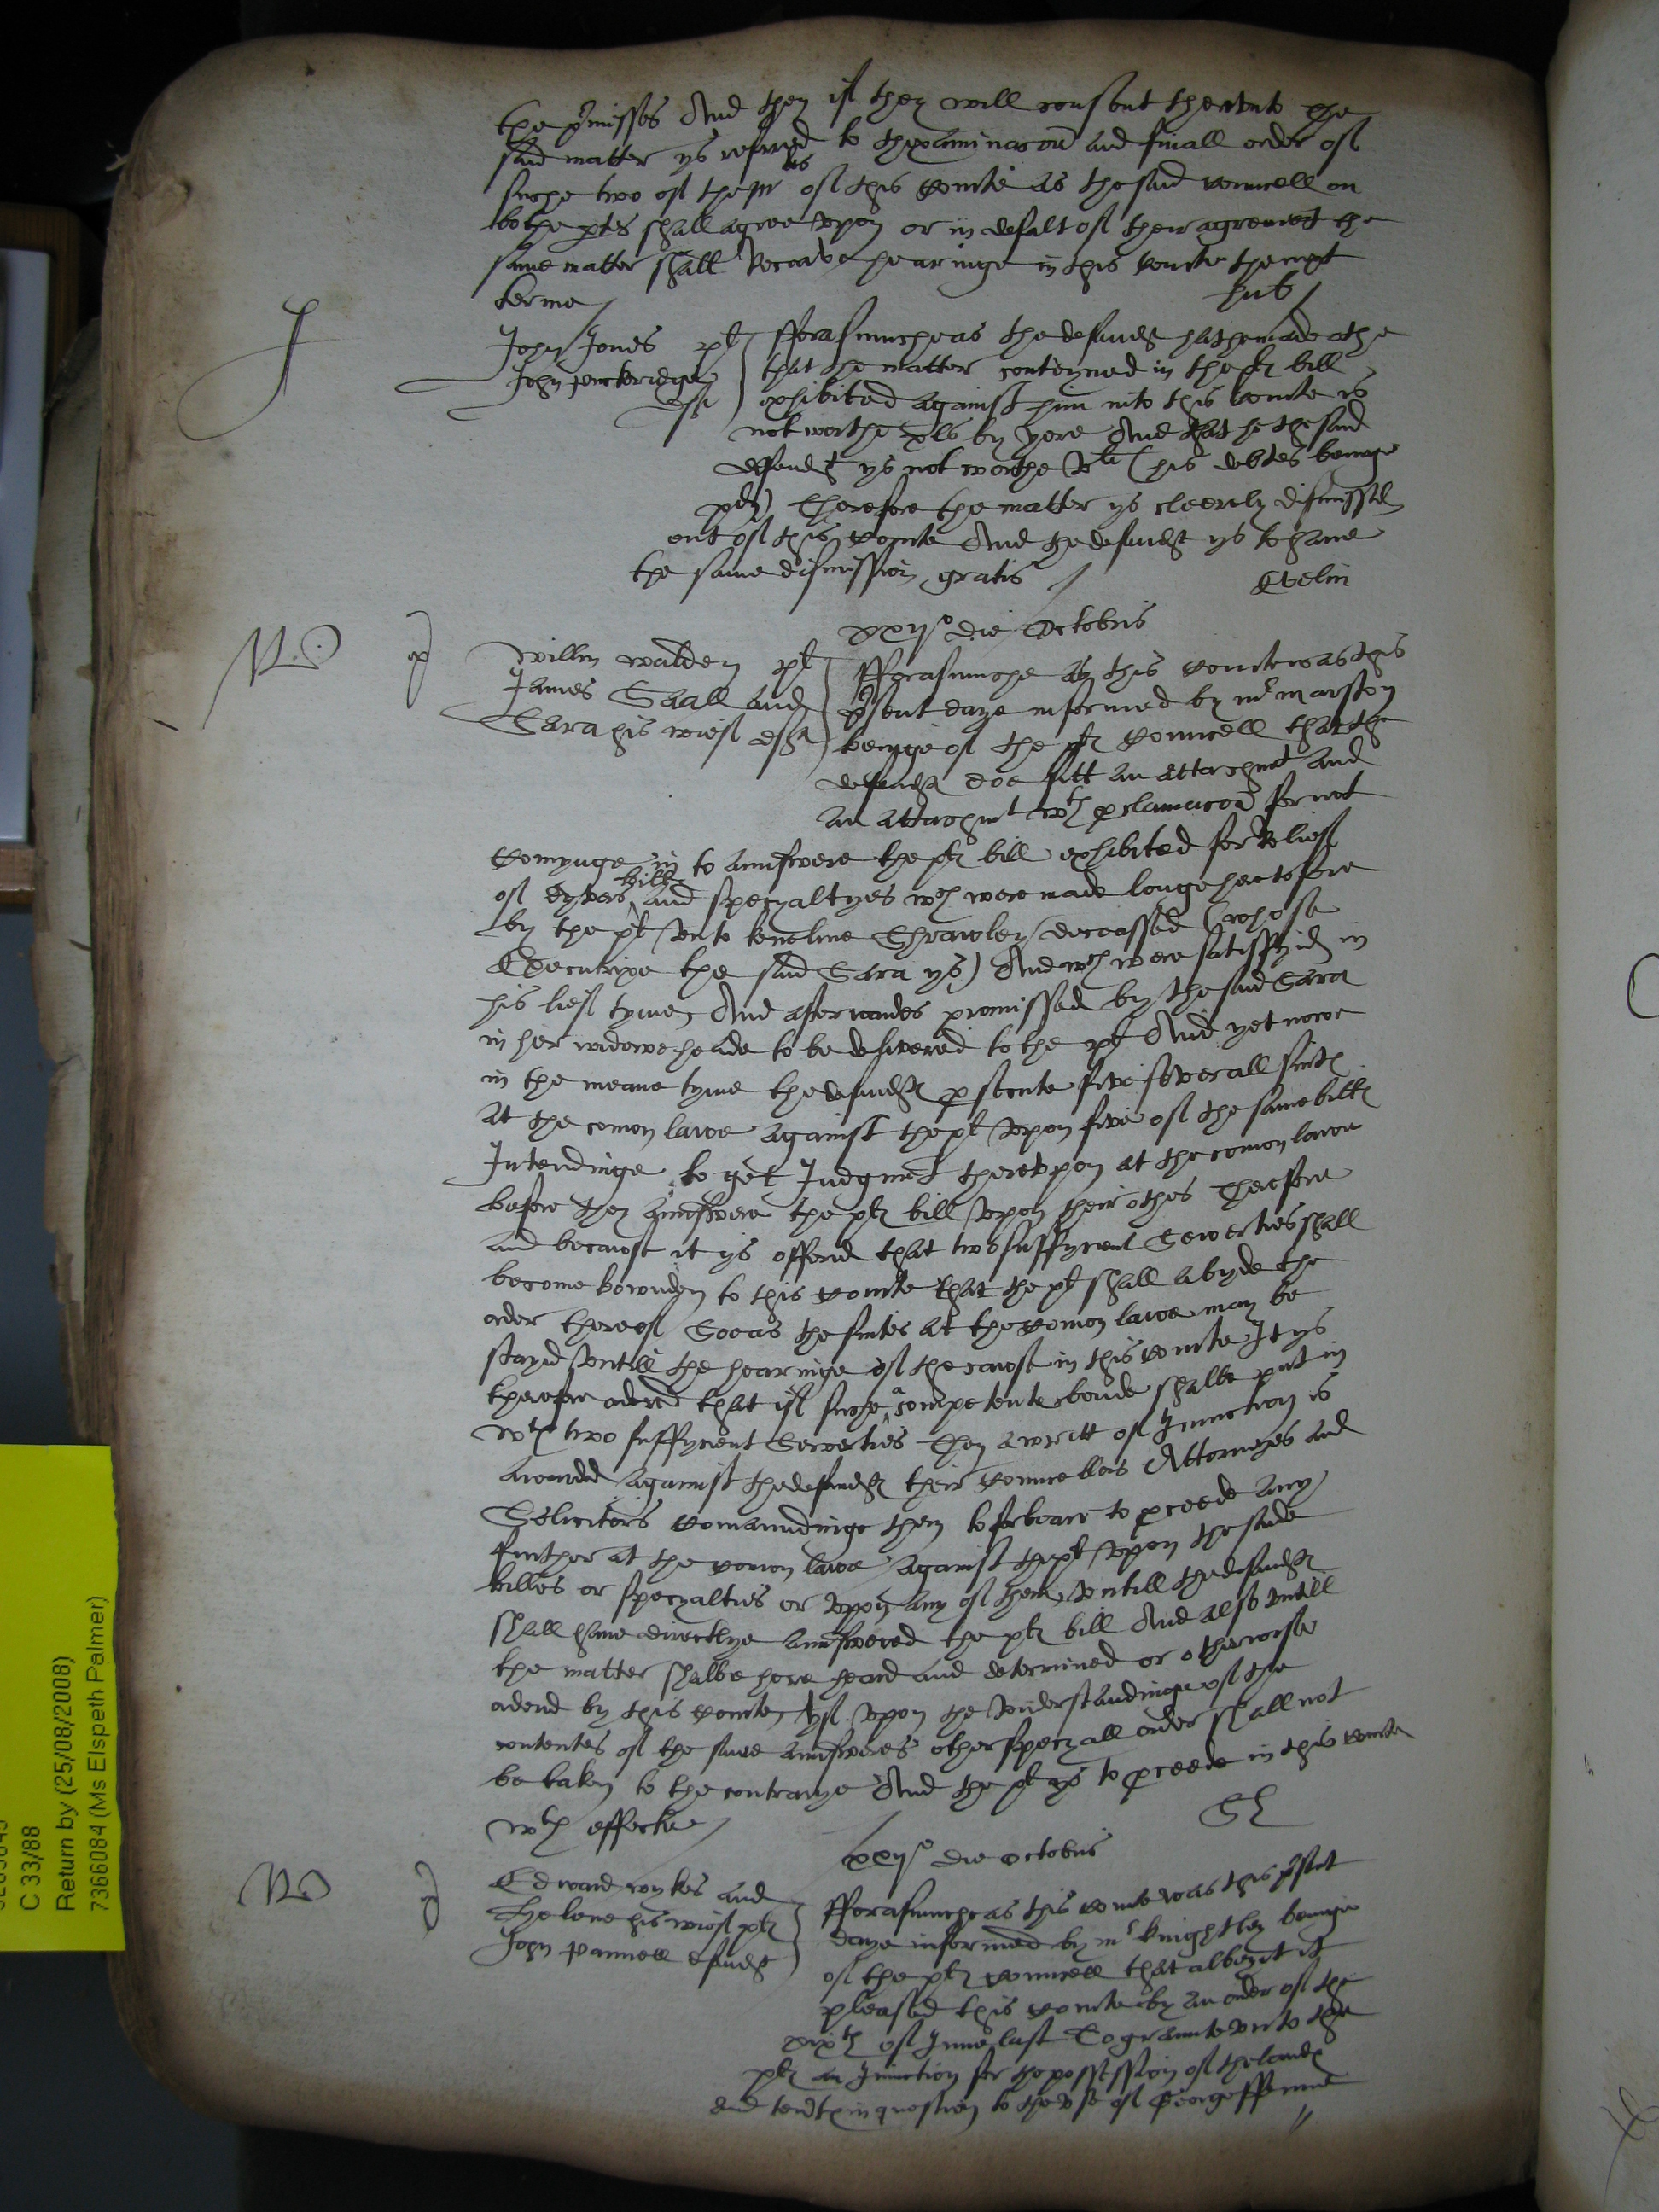 the p'misses And then if they will consent therunto the
said matter ys referred to thexaminacon and finall order of
suche two of the mrs of this courte as the said councell on
bothe ptes shall agree upon or in defalt of their agrement the
same matter shall receave hearinge in this courte the next
terme
hub
J
John Jones plt
John
deft
fforasmuche as the defendt hathe made othe
that the matter conteyned in the plts bill
exhibited against him into this courte is
not worthe xls by yere And that he the said
defendt ys not worthe vli (his debtes beinge
payd) Therefore the matter ys cleerely dismissed
out of this courte And the defendt ys to have
the same dismission gratis
Evelin
xxijo die Octobris
Willm Walden plt
James Skall and
Sara his wief defts
fforasmuche as this courte was this
p'sent daye informed by mr Marston
beinge of the plts councell that the
defendts doe sitt an attachmt and
an attachmt wth p'clamacon for not
comynge in to aunswere the plts bill exhibited for relief
of dyvers bills and specyaltyes wch were made longe heretofore
by the plt unto keneline Thrawley deceassed (whose
Executrixe the said Sara ys) And wch were satisfyed in
his lief tyme And afterwardes promissed by the said Sara
in her widowe heade to be delivered to the plt And yet nowe
in the meane tyme the defendts p'secute five severall suits
at the comon lawe against the plt upon five of the same bills
Intendinge to get Judgmet thereupon at the comon lawe
before they aunswere the plts bill upon their othes Therefore
and becawse it ys offered that two suffycient Sewerties shall
become bownden to this courte that the plt shall abyde the
order thereof Soo as the suites at the comon lawe may be
stayed untill the hearinge of the cawse in this courte It ys
therefore ordered that if suche a competente bonde shalbe put in
wth two suffycient Sewerties Then a writt of Iniunction is
awarded against the defendts their councellors Attorneyes and
Solicitors comaundinge them to forbeare to p'ceede any
further at the comon lawe against the plt upon the saide
billes or specyalties or upon any of them untill the defendts
shall have directlye aunswered the plts bill And also untill
the matter shalbe here heard and determined or otherwise
ordered by this courte, yf upon the understandinge of the
contentes of the same aunsweres other specyall order shall not
be taken to the contrarye And the plt ys to p'ceede in this courte
wth effecte
xxijo die octobris
Edward wykes and
Helene his wief plts
John Pannell defendt
fforasmuche as this courte was this p'sent
daye informed by mr knightley beinge
of the plts councell that albeyt it
pleased this courte by an order of the
xixth of June last To graunte unto the
plts an Iniunction for the possession of the lands
and tents in question to the use of George ffenne
C 33/88
Return by (25/08/2008)
7366084 (Ms Elspeth Palmer)